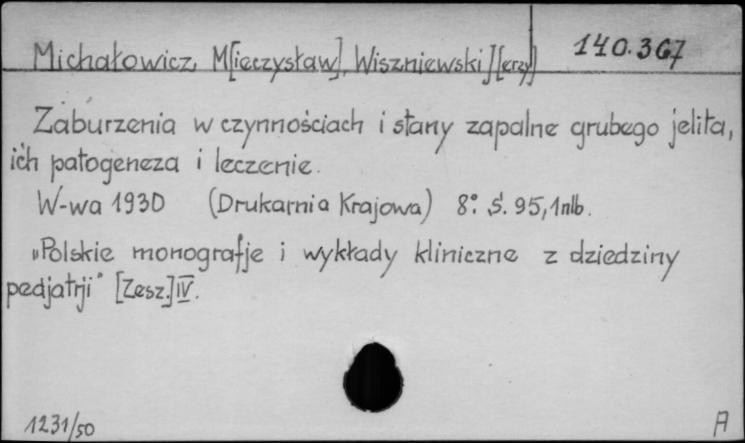 Michałowicz, M[ieczysław], Wiszniewski J[erzy] 140.367
Zaburzenia w czynnościach i stany zapalne grubego jelita,
ich patogeneza i leczenie.
W-wa 1930 (Drukarnia Krajowa) 8° S. 95, 1 nlb.
„Polskie monografje i wykłady kliniczne z dziedziny
pedjatrji" [Zesz.] IV.
1231/50 A